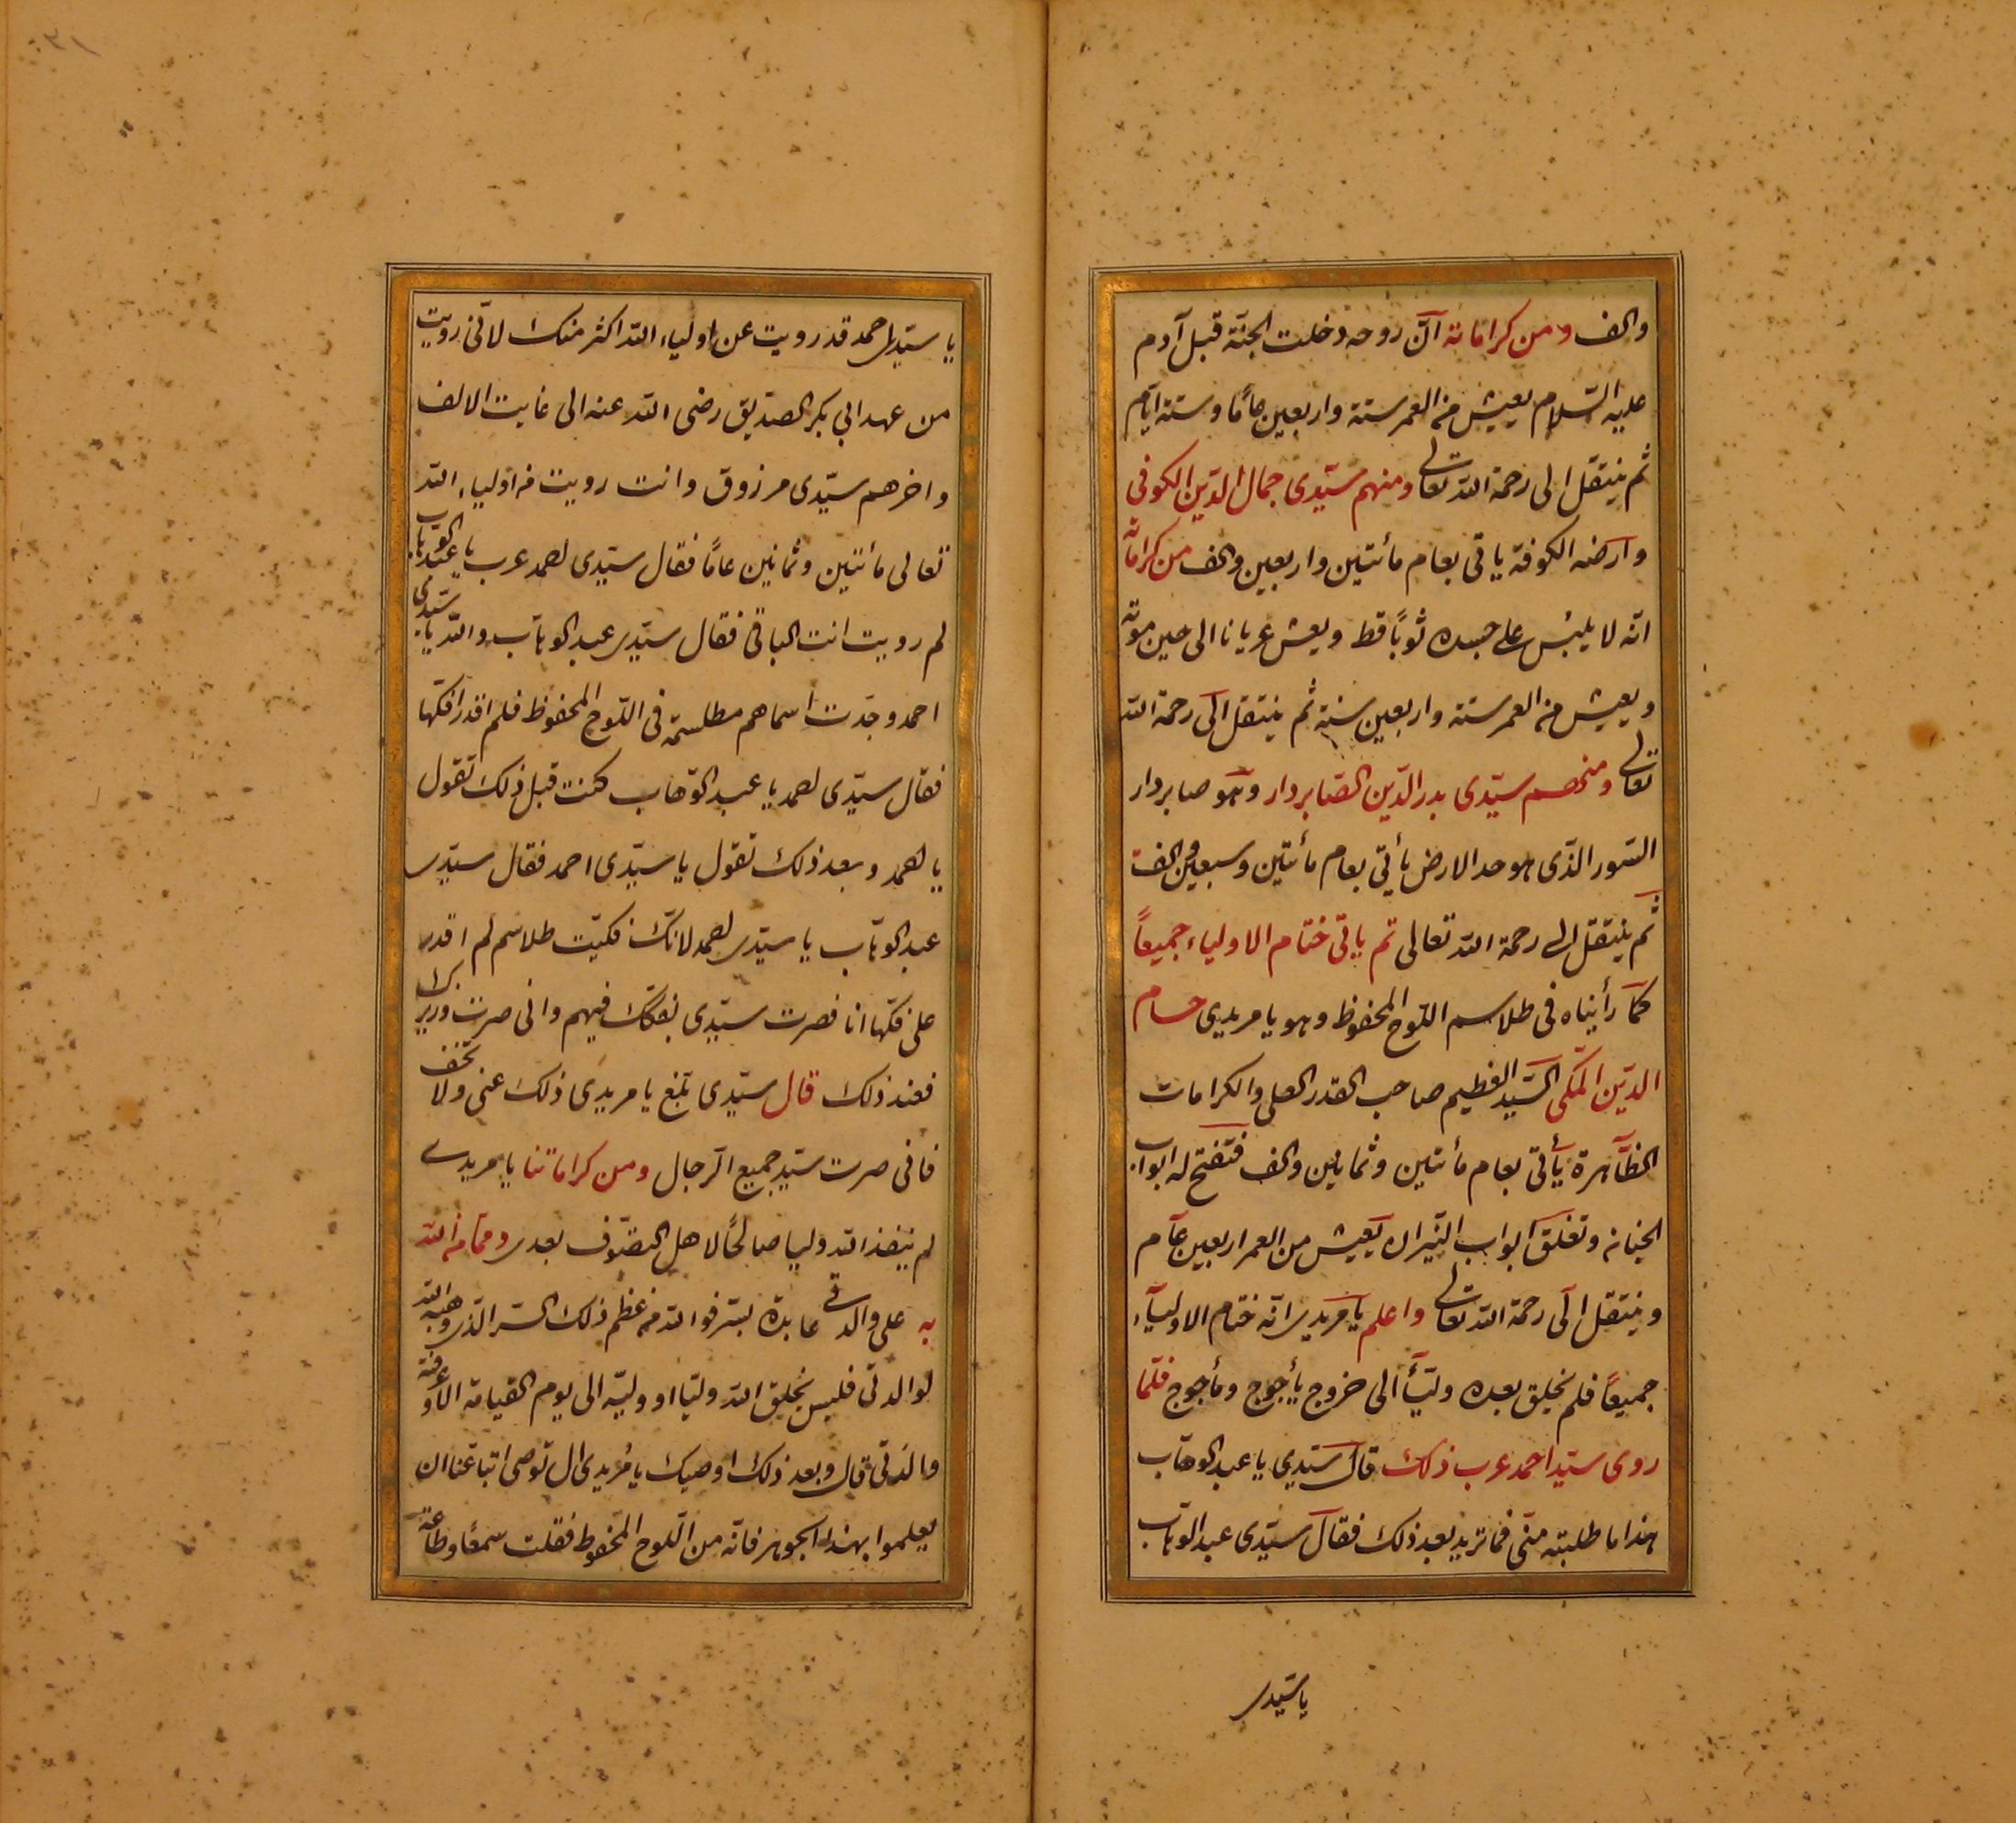 والف ومن كراماته ان روحه دخلت الجنّة قبل آدم
عليه السّلام يعيش من العمر ستة واربعين عامًا وستة ايّام
ثم ينتقل الى رحمة الله تعالى ومنهم سيّدى جمال الدّين الكوفى
وارضه الكوفة ياتى بعام مأتين واربعين والف من كراماته
انّه لا يلبس على جسده ثوبًا قط ويعش عريانا الى حين موته
ويعيش من العمر ستة واربعين سنة ثم ينتقل الى رحمة الله
تعالى ومنهم سيّدى بدر الدّين الصّابردار وهو صابردار
السّور الذّى هو حد الارض يأتى بعام مأتين وسبعين والف
ثم ينتقل الى رحمة الله تعالى ثم ياتى ختام الاولياء جميعاً
كما رأيناه فى طلاسم اللّوح المحفوظ وهو يا مريدى حسام
الدّين المكّى السّيد العظيم صاحب القدر العلى والكرامات
الظّاهرة يأتى بعام مأتين وثمانين والف فتفتح له ابواب
الجنانه وتغلق ابواب النّيران يعيش من العمر اربعين عام
وينتقل الى رحمة الله تعالى واعلم يا مريدى انّه ختام الاوليآء
جميعاً فلم يخلق بعده وليّاً الى خروج يأجوج ومأجوج فلمّا
روى سيّد احمد عرب ذلك قال سيّدي يا عبد الوهاب
هذا ما طلبته منّى فما تريد بعد ذلك فقال سيّدى عبد الوهاب
يا سيّدى
يا سيّدى احمد قد رويت عن اولياء الله اكثر منك لانّى رويت
من عهد ابي بكر الصدّيق رضى الله عنه الى غايت الالف
واخرهم سيّدى مرزوق وانت رويت من اولياء الله
تعالى مأتين وثمانين عامًا فقال سيّدى احمد عرب يا عبد الوهاب
لم رويت انت الباقى فقال سيّدى عبد الوهاب والله يا سيّدى
احمد وجدت اسماهم مطلسمة فى اللّوح المحفوظ فلم اقدر افكّها
فقال سيّدى احمد يا عبد الوّهاب كنت قبل ذلك تقول
يا احمد وبعد ذلك تقول يا سيّدى احمد فقال سيّدى
عبد الوهّاب يا سيّدى احمد لانّك فكيّت طلاسم لم اقدر
على فكّها انا فصرت سيّدى بفكّك فيهم وانى صرت وريرك
فعند ذلك قال سيّدى بلّغ يا مريدى ذلك عنى ولا تخف
فانى صرت سيّد جميع الرّجال ومن كراماتنا يا مريدى
لم ينفذ الله وليا صالحًا لاهل التصّوف بعدى وممّا من الله
به على والدتى عابدة بشرفوا الله من عظم ذلك السّر الذّى وهبه الله
لوالدتى فليس يخلق الله وليّا او وليّه الى يوم القيامة الا وعرفته
والدتى قال وبعد ذلك اوصيك يا مريدى ال توصى اتباعنا ان
يعلموا بهذا الجوهر فانّه من اللّوح المحفوظ فقلت سمعًا وطاعة